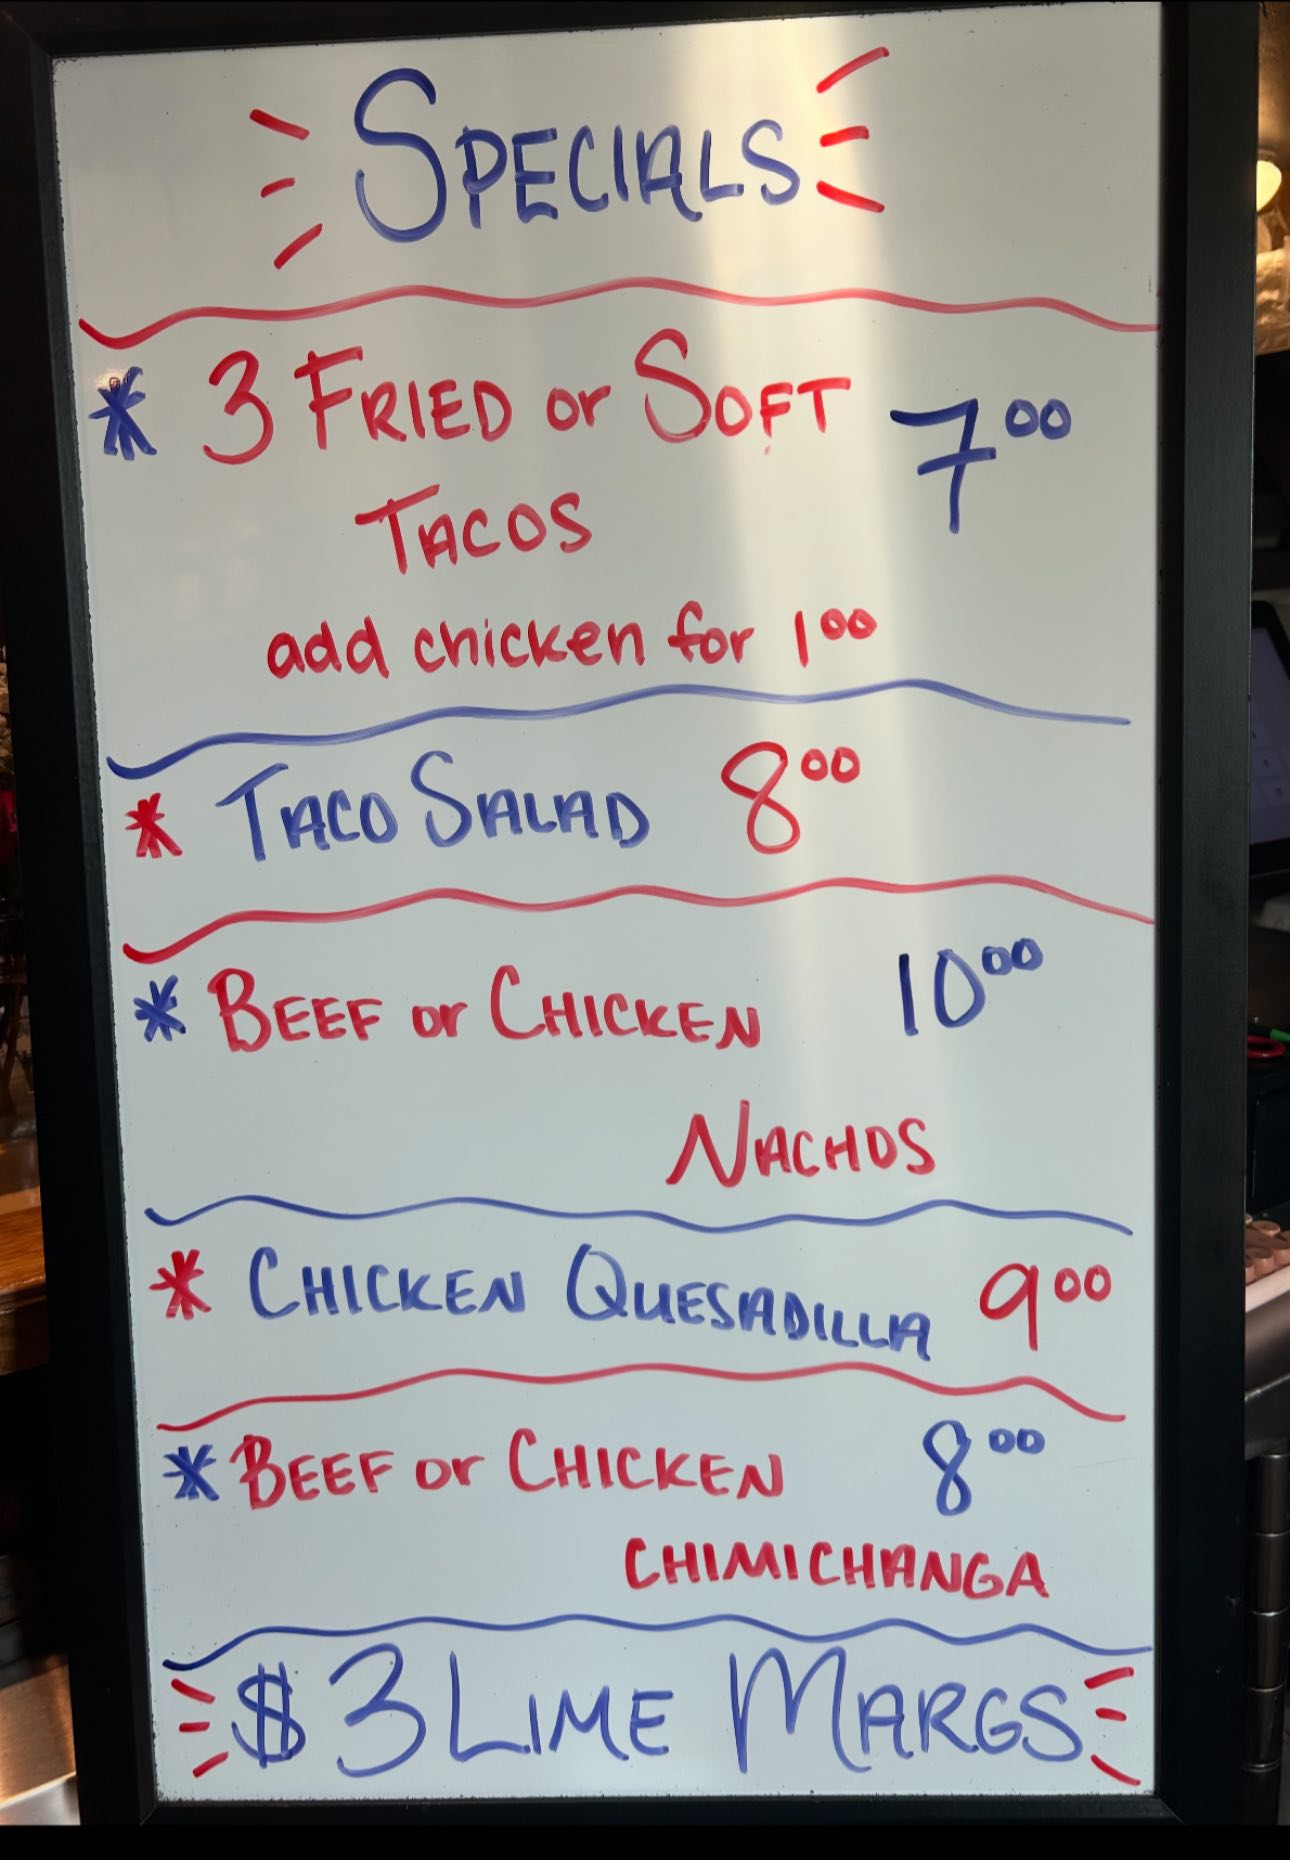 SPECIALS
* 3 FRIED or SOFT 7⁰⁰
TACOS
add chicken for 1⁰⁰
* TACO SALAD 8⁰⁰
* BEEF or CHICKEN 10⁰⁰
NACHOS
* CHICKEN QUESADILLA 9⁰⁰
* BEEF or CHICKEN 8⁰⁰
CHIMICHANGA
$3 LIME MARGS